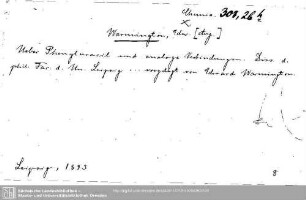 Chemie. 308, 26 h
Warmington, Edw. [etc.]
Ueber Phenyluracil und analoge Verbindungen. Diss. d.
phil. Fac. d. Un. Leipzig ... vorgelegt von Edward Warmington
Leipzig, 1893
8
Sächsische Landesbibliothek -
Staats- und Universitätsbibliothek Dresden